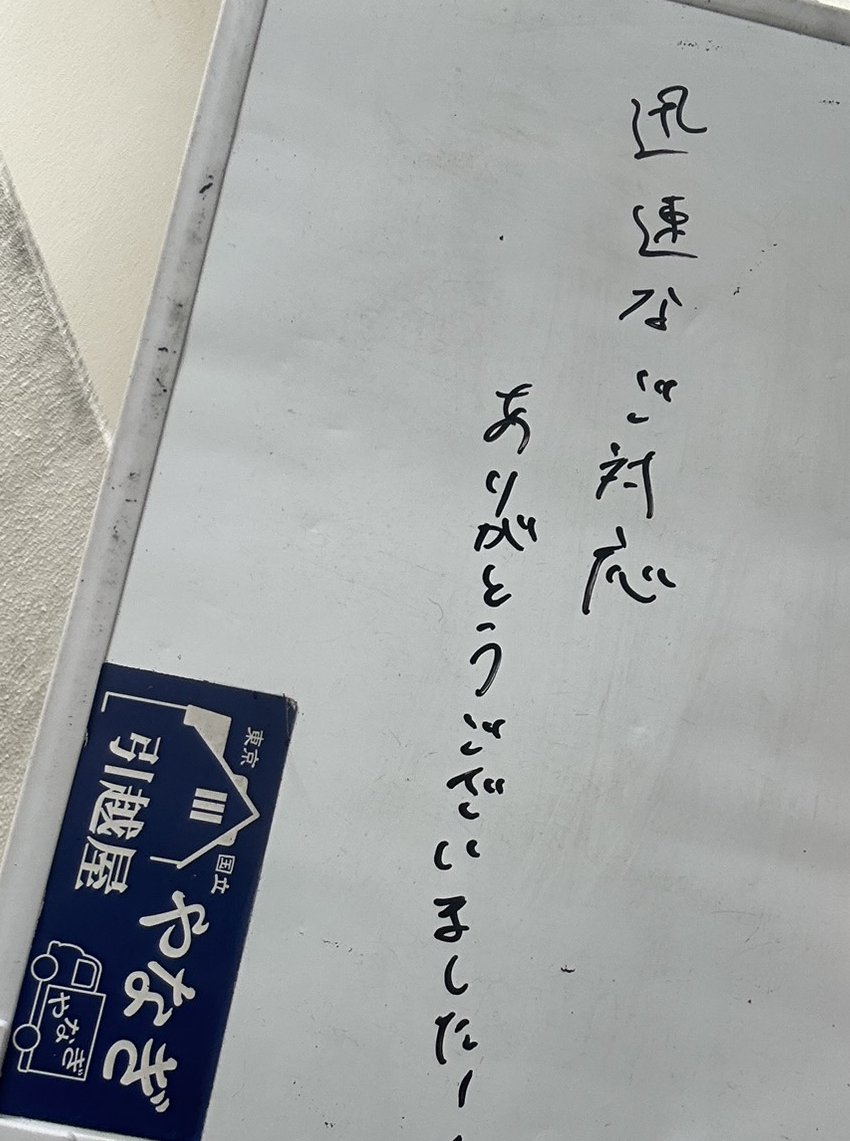 迅速なご対応
ありがとうございましたー
東京
国立
引越屋
やなぎ
やなぎ